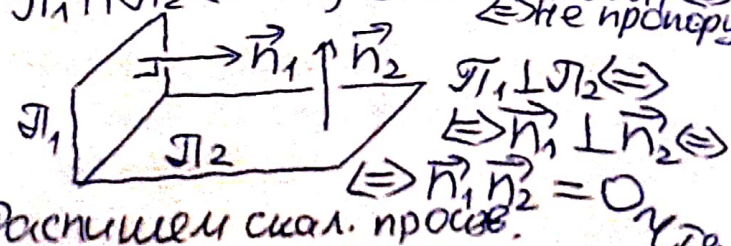 ⇔ не пропорц
n⃗₁ n⃗₂ π₁ ⊥ π₂ ⇔
π₁ π₂ ⇔ n⃗₁ ⊥ n⃗₂ ⇔
⇔ n⃗₁ n⃗₂ = 0,
Распишем скал. произв.